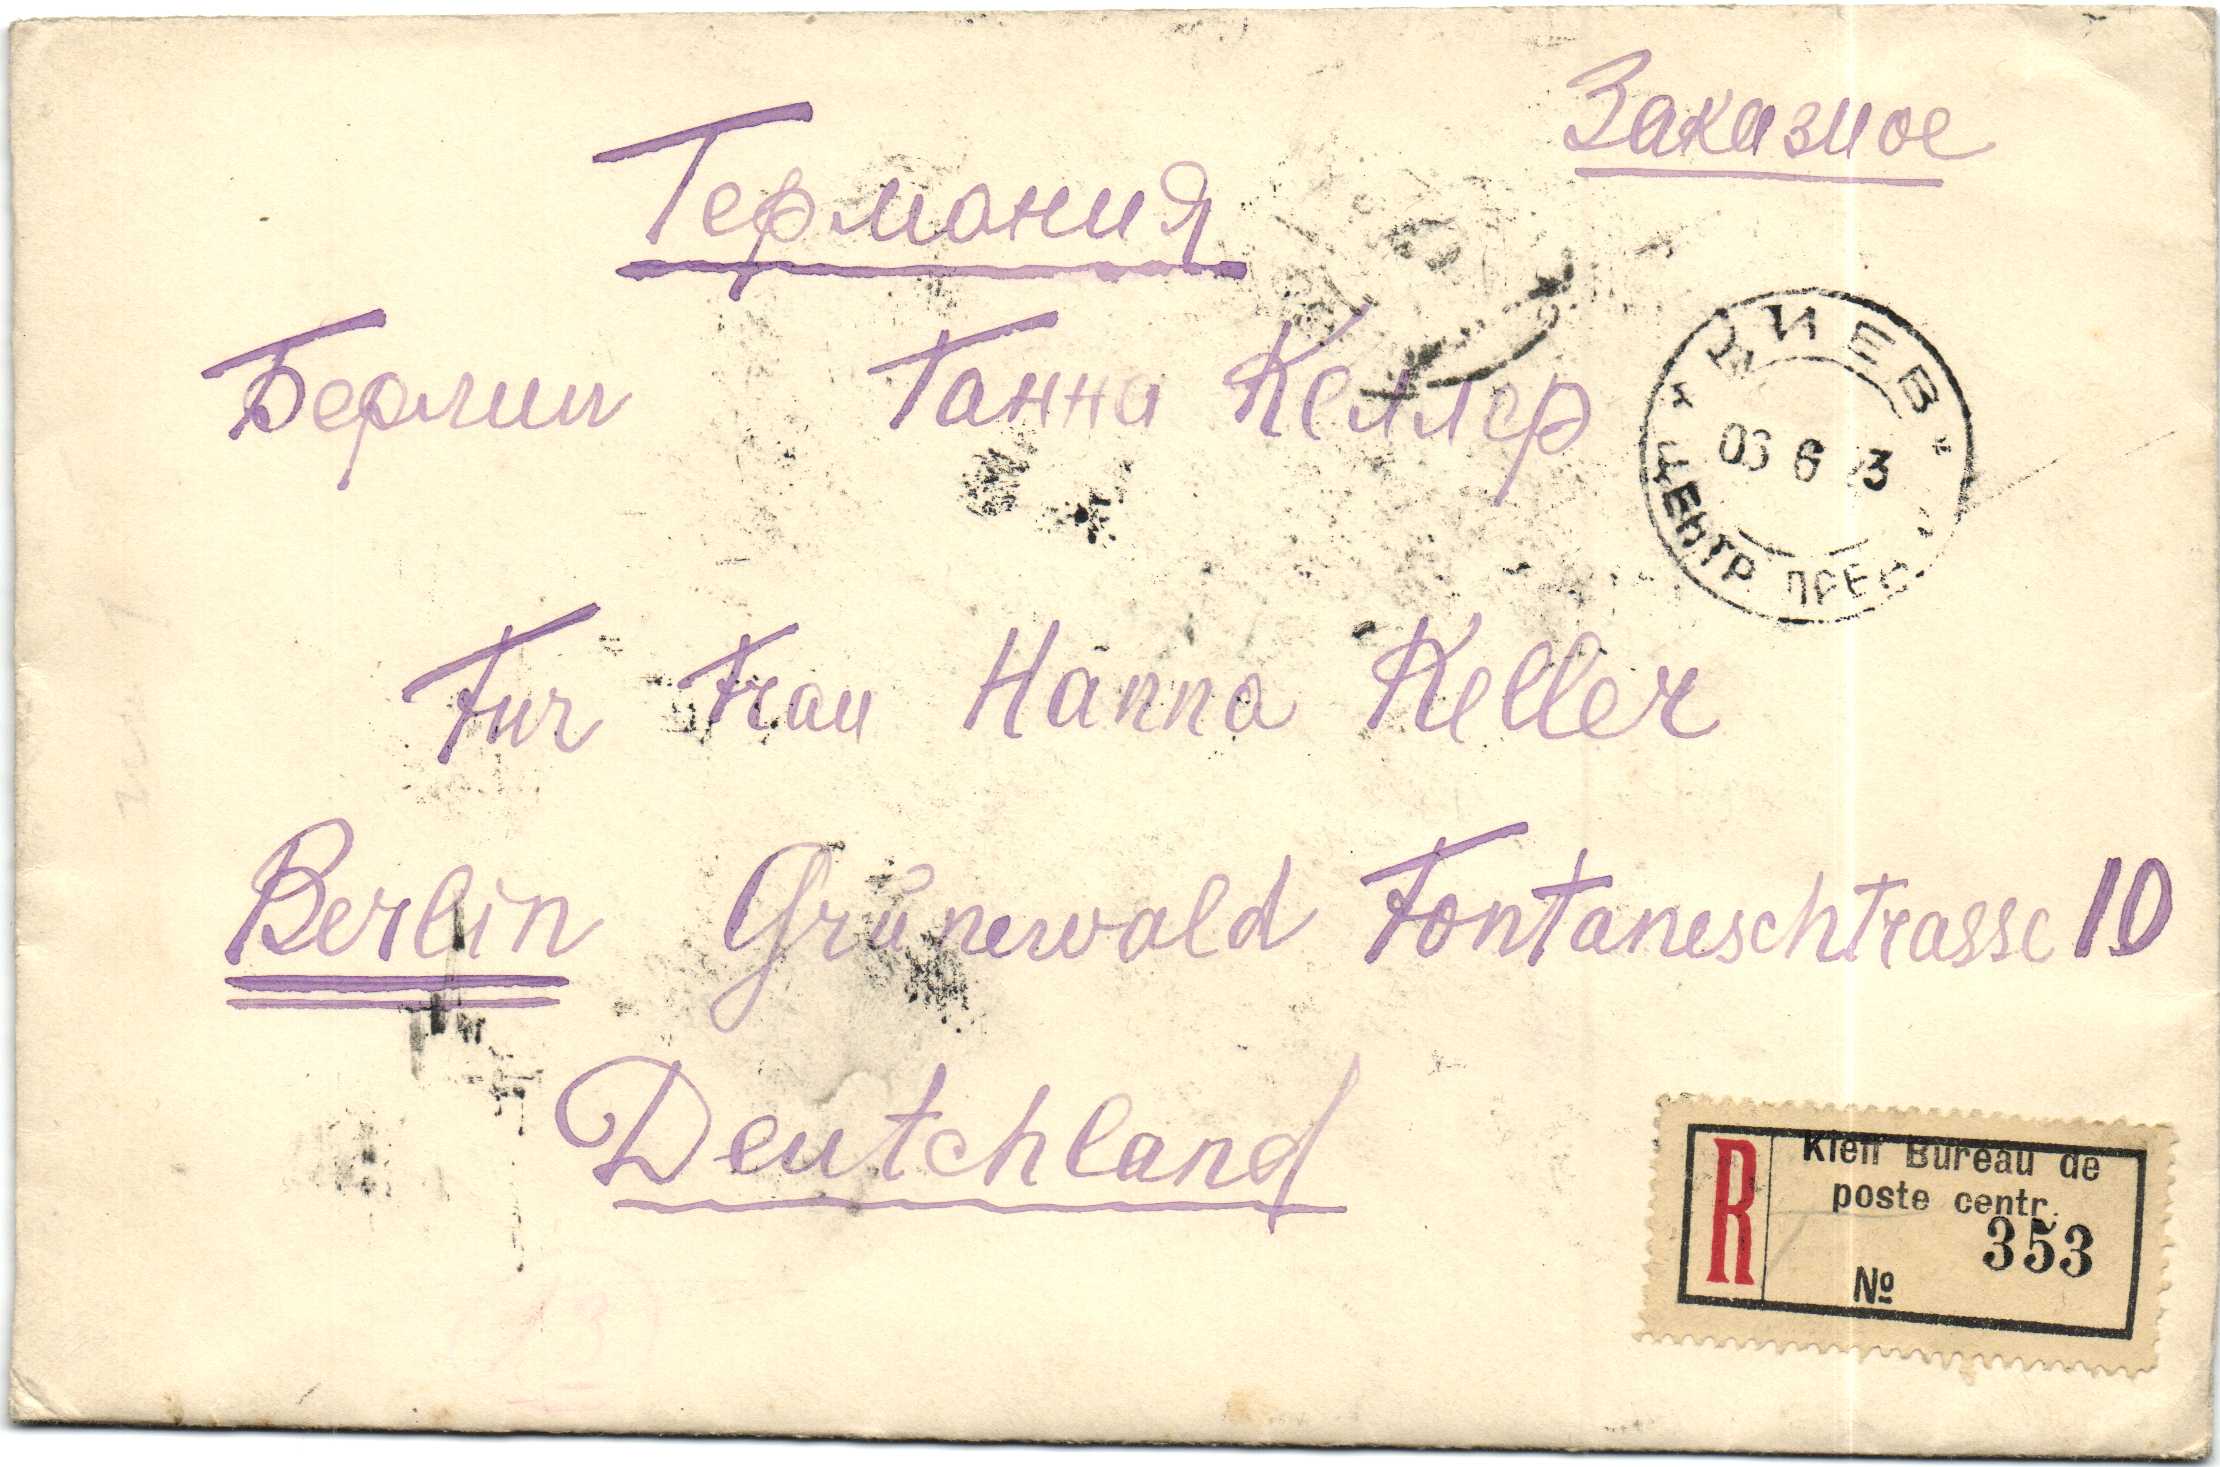 Заказное
Германия
Берлин Ганна Келлер
КИЕВ
06 6 3
ЦЕНТР
Fur Frau Hanna Keller
Berlin Grünewald Fontaneschtrasse 10
Deutchland
R Kieff Bureau de
poste centr.
353
№